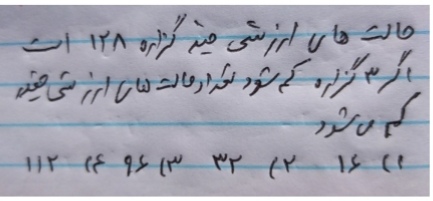 حالت های ارزشی چند گزاره ۱۲۸ است
اگر ۳ گزاره کم شود تعداد حالت های ارزشی چقدر
کم می شود
۱) ۱۶ ۲) ۳۲ ۳) ۹۶ ۴) ۱۱۲